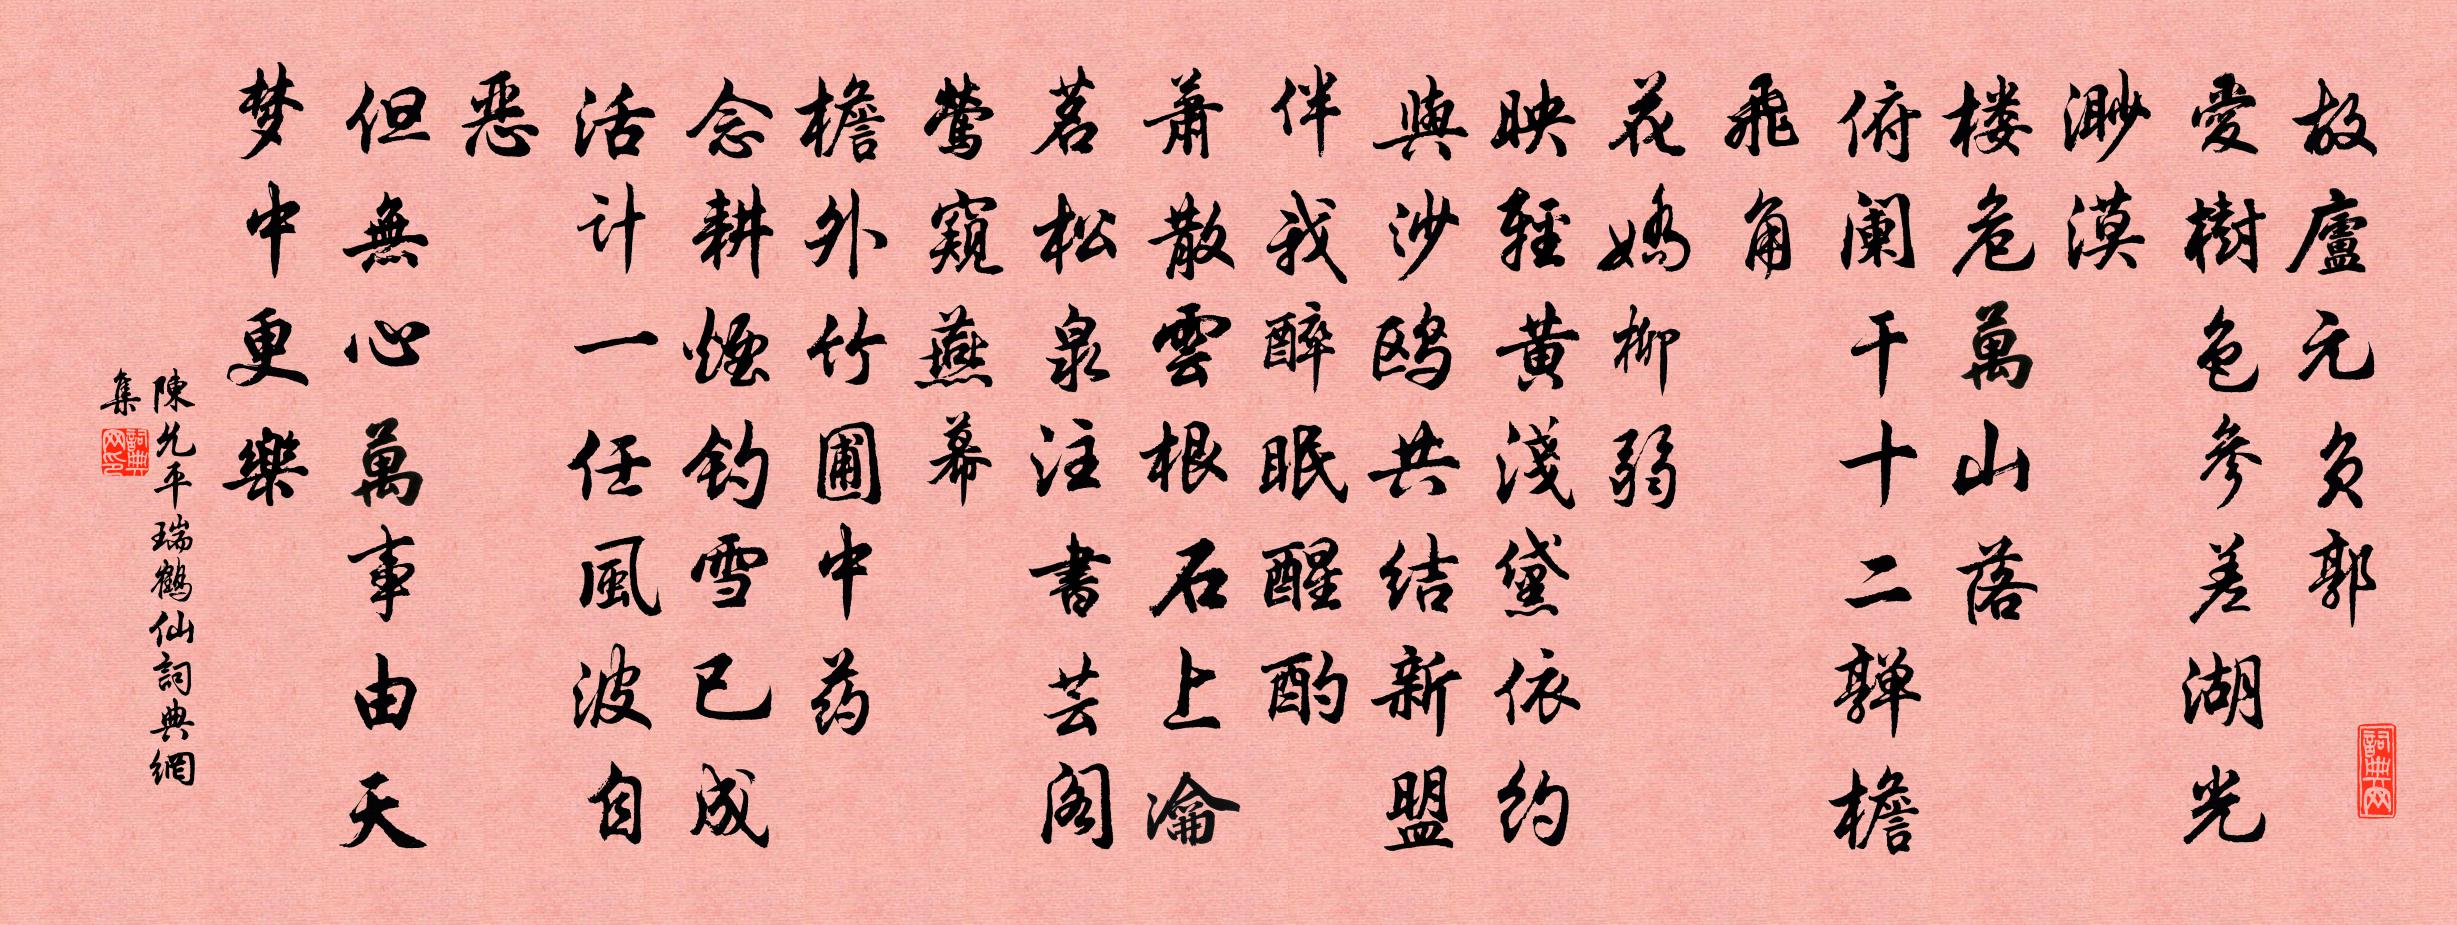 故廬元负郭
愛樹色参差湖光
渺漠
楼危萬山落
俯阑干十二亸檐
飛角
花嬌柳弱
映輕黄淺黛依约
與沙鸥共结新盟
伴我醉眠醒酌
萧散雲根石上瀹
茗松泉注書芸阁
莺窺燕幕
檐外竹圃中药
念耕煙钓雪已成
活计一任風波自
恶
但無心萬事由天
梦中更樂
陳允平瑞鶴仙詞典網
集
詞典网
詞典网印